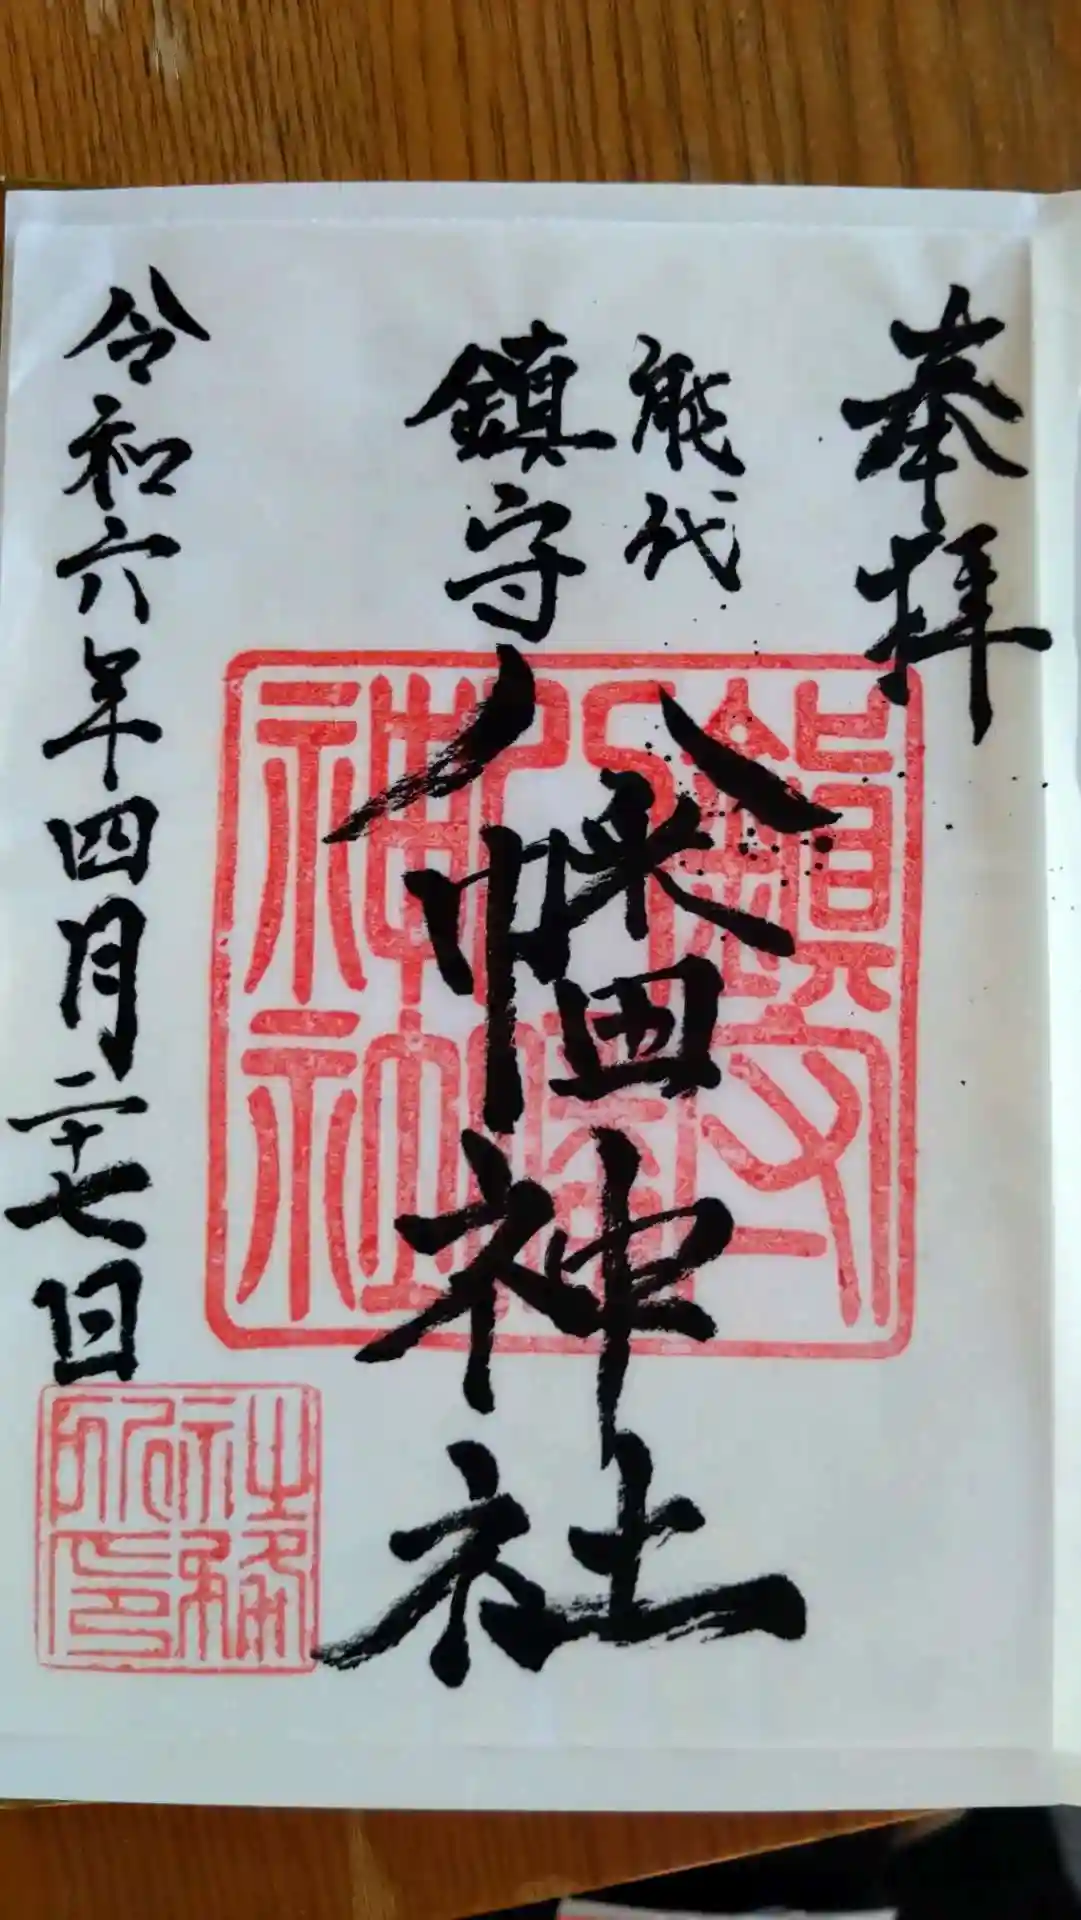 奉拝
能代
鎮守
八幡神社
令和六年四月二十七日
鎮守
八幡
神社
社務
所印